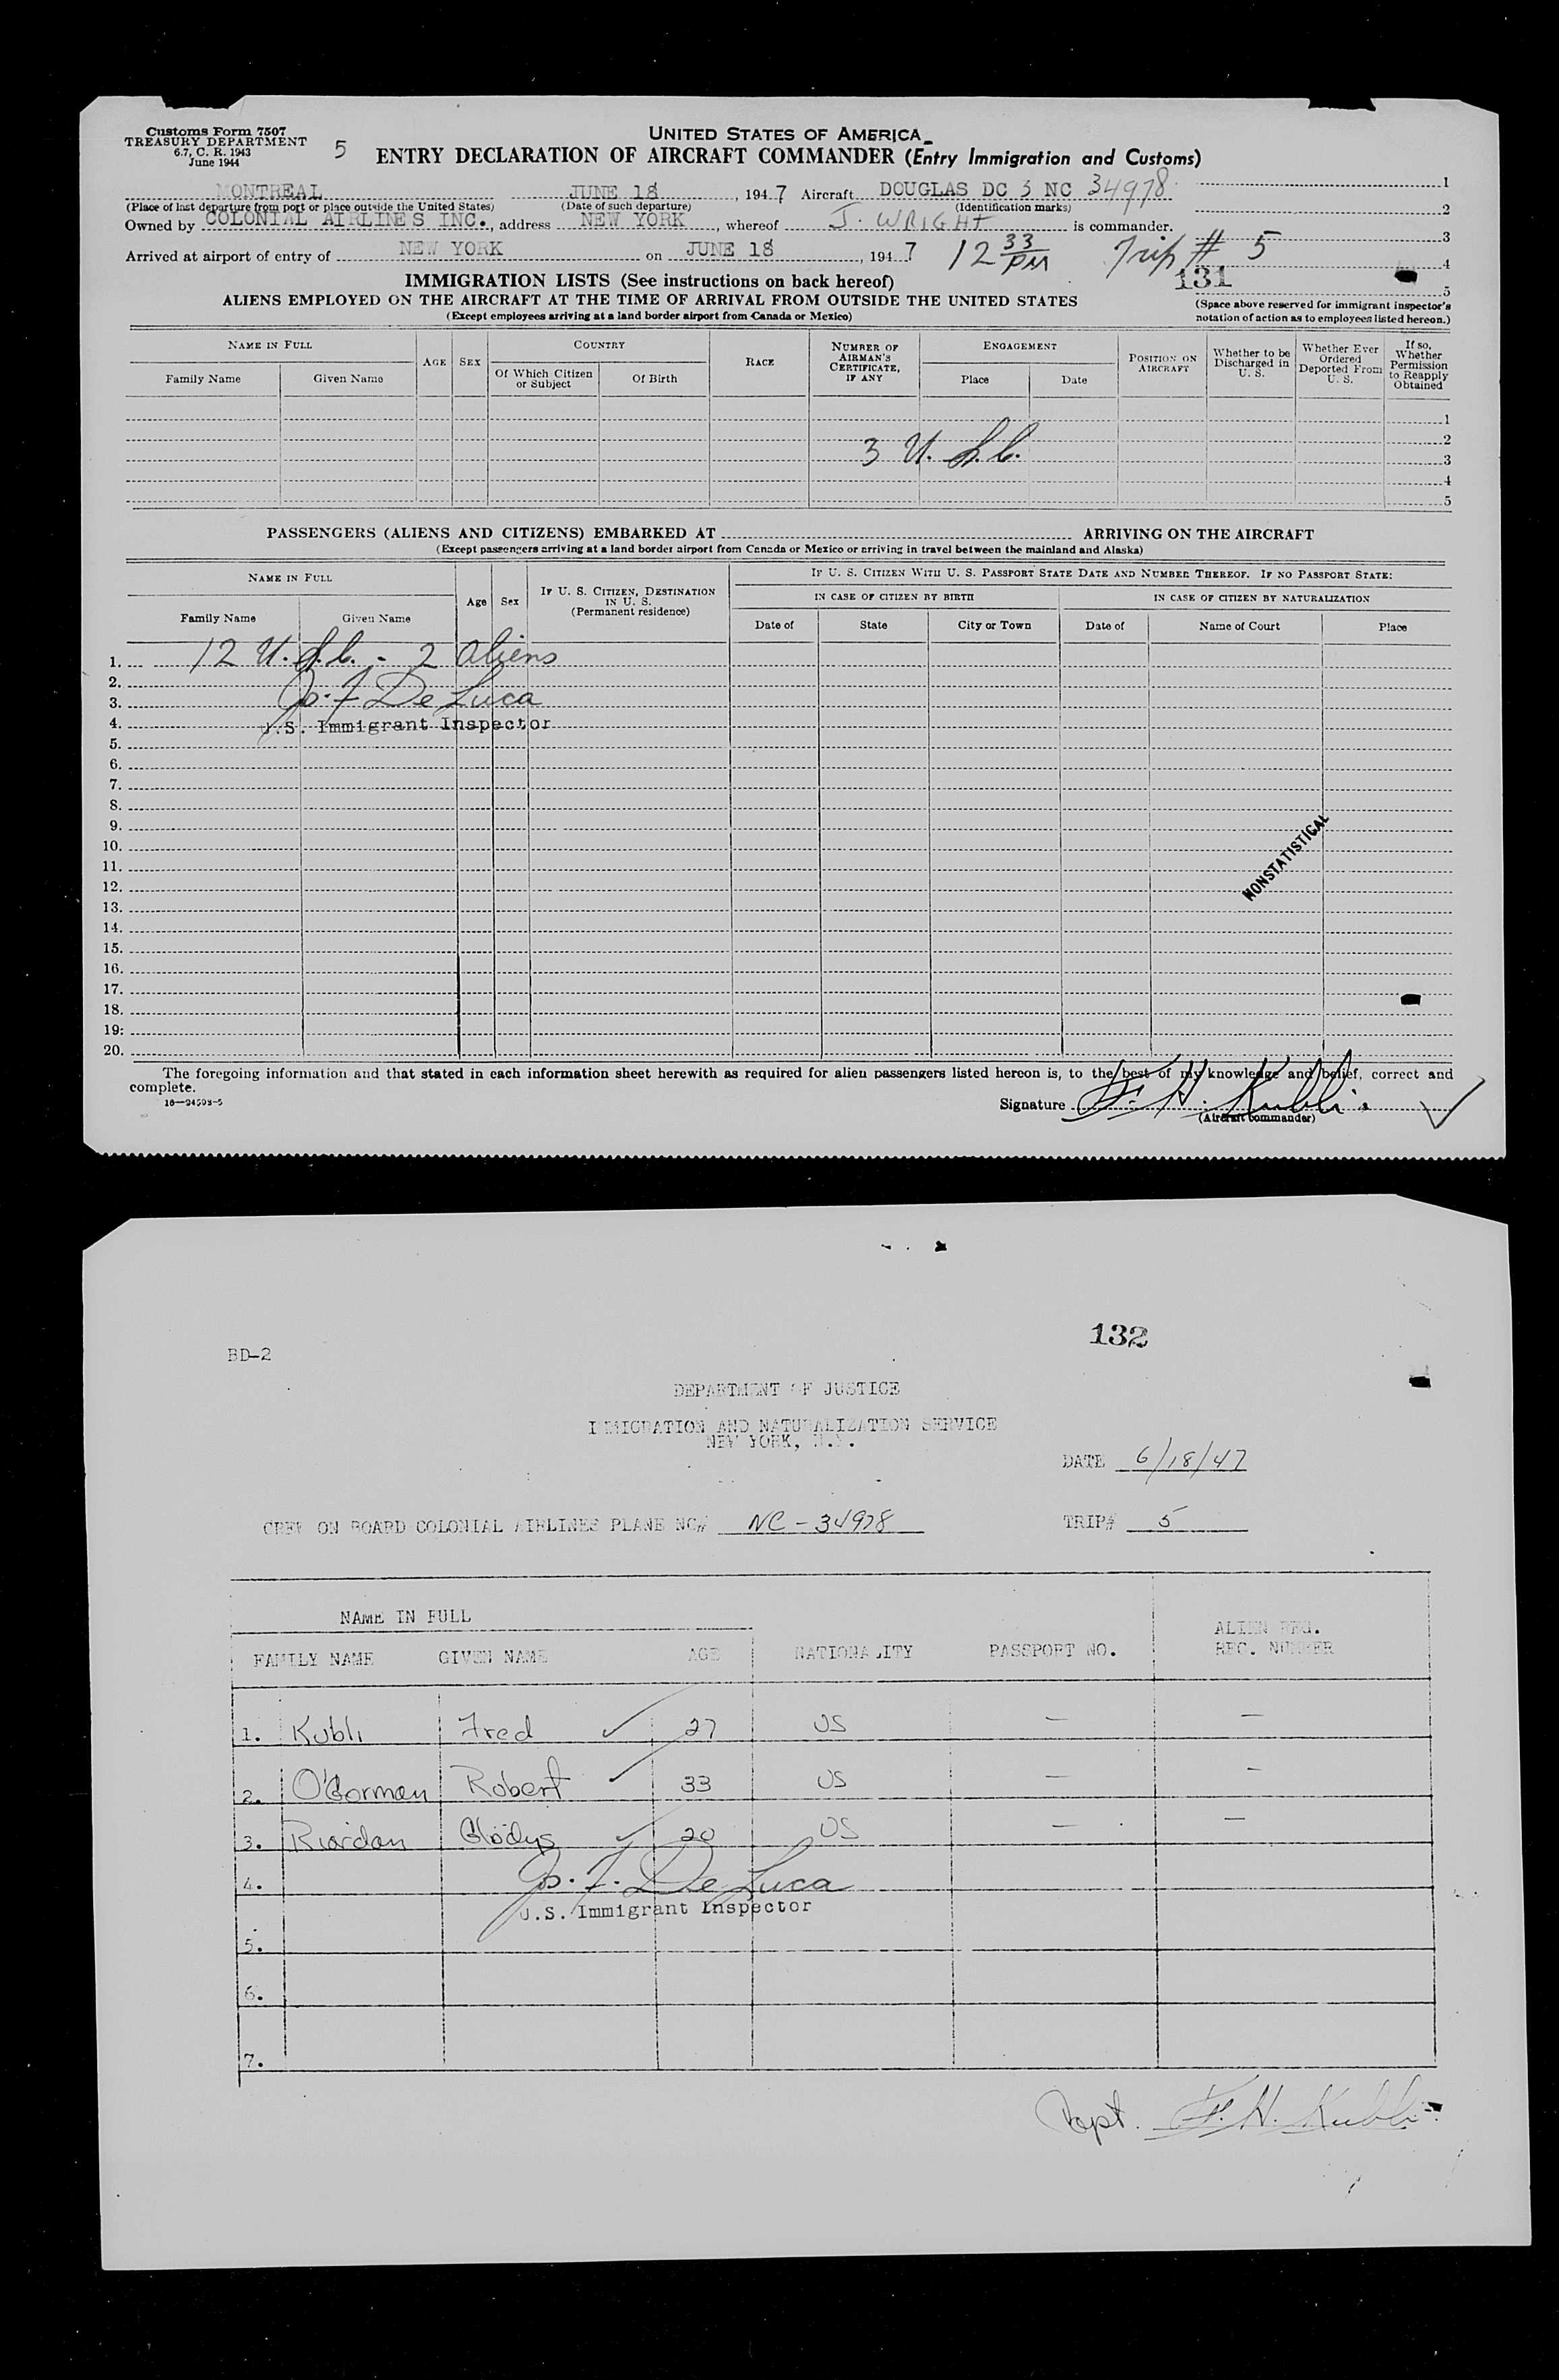 Customs Form 7507
TREASURY DEPARTMENT
6.7, C. R. 1943
June 1944
5
UNITED STATES OF AMERICA
ENTRY DECLARATION OF AIRCRAFT COMMANDER (Entry Immigration and Customs)
MONTREAL JUNE 18, 1947 Aircraft DOUGLAS DC 3 NC 34978 1
(Place of last departure from port or place outside the United States) (Date of such departure) (Identification marks) 2
Owned by COLONIAL AIRLINES INC., address NEW YORK, whereof J. WRIGHT is commander.
3
Arrived at airport of entry of NEW YORK on JUNE 18, 1947 12 33 PM Trip # 5
4
131
5
IMMIGRATION LISTS (See instructions on back hereof)
ALIENS EMPLOYED ON THE AIRCRAFT AT THE TIME OF ARRIVAL FROM OUTSIDE THE UNITED STATES
(Except employees arriving at a land border airport from Canada or Mexico)
(Space above reserved for immigrant inspector's
notation of action as to employees listed hereon.)
NAME IN FULL
Family Name Given Name
AGE SEX
COUNTRY
Of Which Citizen or Subject Of Birth
RACE
NUMBER OF AIRMAN'S CERTIFICATE, IF ANY
ENGAGEMENT
Place Date
POSITION ON AIRCRAFT
Whether to be Discharged in U. S.
Whether Ever Ordered Deported From U. S.
If so, Whether Permission to Reapply Obtained
1
2
3 U. S. C.
3
4
5
PASSENGERS (ALIENS AND CITIZENS) EMBARKED AT ARRIVING ON THE AIRCRAFT
(Except passengers arriving at a land border airport from Canada or Mexico or arriving in travel between the mainland and Alaska)
NAME IN FULL
Family Name Given Name
Age Sex
IF U. S. CITIZEN, DESTINATION IN U. S. (Permanent residence)
IF U. S. CITIZEN WITH U. S. PASSPORT STATE DATE AND NUMBER THEREOF. IF NO PASSPORT STATE:
IN CASE OF CITIZEN BY BIRTH IN CASE OF CITIZEN BY NATURALIZATION
Date of State City or Town Date of Name of Court Place
1. 12 U.S.C. - 2 aliens
2.
3. Jos. F. De Luca
4. U.S. Immigrant Inspector
5.
6.
7.
8.
9.
10.
11.
12.
13.
14.
15.
16.
17.
18.
19.
20.
NONSTATISTICAL
The foregoing information and that stated in each information sheet herewith as required for alien passengers listed hereon is, to the best of my knowledge and belief, correct and
complete.
16—34598-5
Signature F. H. Kubli
(Aircraft commander)
132
BD-2
DEPARTMENT OF JUSTICE
IMMIGRATION AND NATURALIZATION SERVICE
NEW YORK, N.Y.
DATE 6/18/47
CREW ON BOARD COLONIAL AIRLINES PLANE NC# NC - 34978 TRIP# 5
NAME IN FULL
FAMILY NAME GIVEN NAME AGE NATIONALITY PASSPORT NO. ALIEN REG. REC. NUMBER
1. Kubli Fred 27 US — —
2. O'Gorman Robert 33 US — —
3. Riordan Gladys 20 US — —
4. Jos. F. De Luca
U.S. Immigrant Inspector
5.
6.
7.
Capt. F. H. Kubli